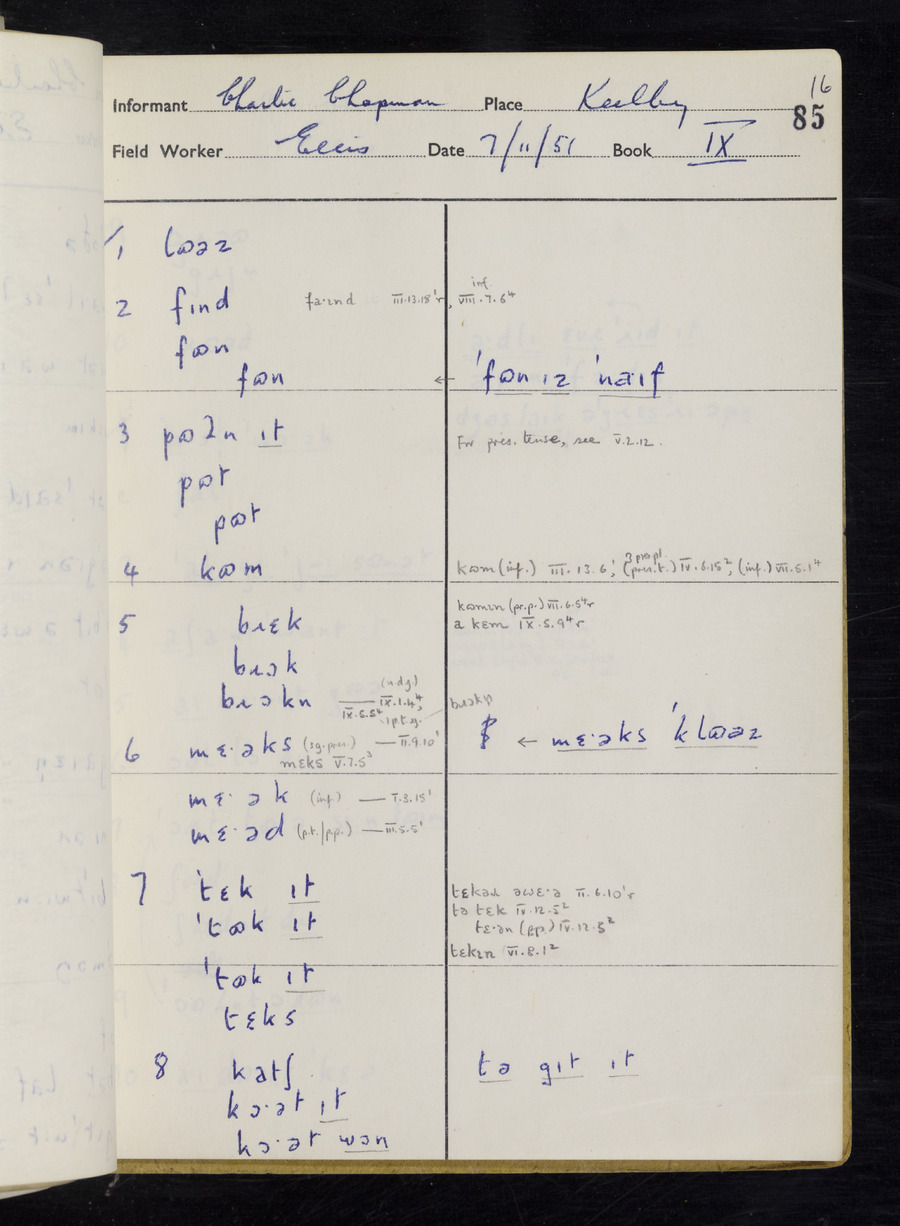 16
Informant Charlie Chapman Place Keelby 85
Field Worker Ellis Date 7/11/51 Book IX
1 lʊəz
2 fɪnd fa·ɪnd III.13.18¹r, inf. VIII.7.6⁴
fʊn
fʊn ← ˈfʊn ɪz ˈnaɪf
3 pʊʔn ɪt For pres. tense, see V.2.12.
pʊt
pʊt
4 kʊm kʊm (inf.) III.13.6¹, 3 pr. pl. (pres. t.) IV.6.15², (inf.) VII.5.1⁴
kʊmɪn (pr.p.) VII.6.5⁴r
5 bɹɛk a kɛm IX.5.9⁴r
bɹɔk
bɹɔkn (n.dg.) IX.1.4⁴, IX.5.5⁴ 1 p.t.sg. bɹɔkn
6 mɛ·əks (sg. pres.) — II.9.10¹ ← mɛ·əks ˈklʊəz
mɛks V.7.5³
mɛ·ək (inf.) — I.3.15¹
mɛ·əd (p.t./p.p.) — III.5.5¹
7 ˈtɛk ɪt tɛkəɹ əwɛ·ə II.6.10¹r
ˈtʊk ɪt tə tɛk IV.12.5²
tɛ·ən (p.p.) IV.12.5²
tɛkɪn VI.8.1²
ˈtʊk ɪt
tɛks
8 katʃ tə gɪt ɪt
kɔ·ət ɪt
kɔ·ət wɔn